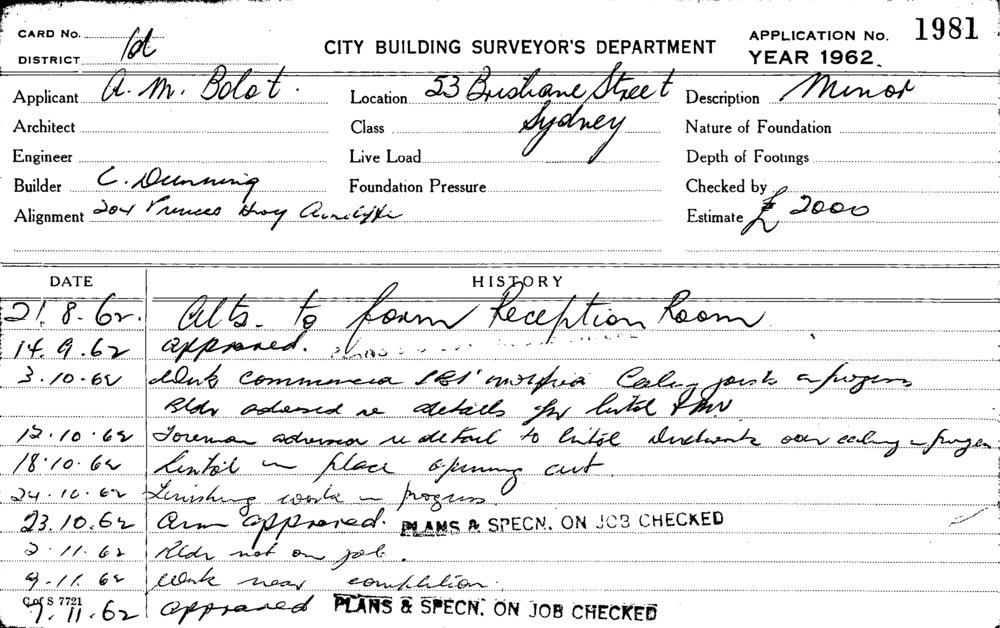 CARD No.
DISTRICT 1d
CITY BUILDING SURVEYOR'S DEPARTMENT
APPLICATION No. 1981
YEAR 1962.
Applicant A. M. Bolot.
Location 53 Brisbane Street
Sydney
Description Minor
Architect
Class
Nature of Foundation
Engineer
Live Load
Depth of Footings
Builder C. Dunning
Foundation Pressure
Checked by
Alignment 204 Princes Hwy Arncliffe
Estimate £ 2000
DATE HISTORY
21.8.62. Alts. to form Reception Room
14.9.62 approved.
3.10.62 Work Ceiling joists in progress
Bldr advised re details for lintol
12.10.62 Foreman advised re detail to lintol over ceiling in progress
18.10.62 lintol in place opening cut
24.10.62 Finishing work in progress
23.10.62 approved. PLANS & SPECN. ON JOB CHECKED
2.11.62 Bldr not on job.
9.11.62 Work near completion.
C of S 7721
.11.62 approved PLANS & SPECN. ON JOB CHECKED